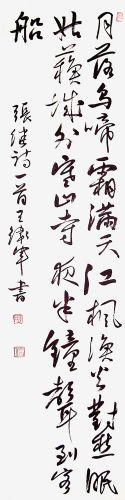 月落烏啼霜滿天江楓漁火對愁眠
姑蘇城外寒山寺夜半鐘聲到客
船
張繼詩一首王軍書